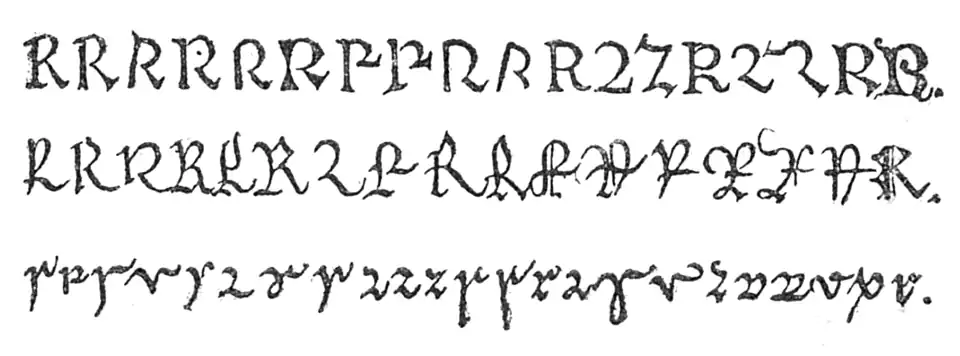 R R R R R R R R R R R R R R R R R R.
R R R R R R R R R R R R R R R R R.
r r r r r r r r r r r r r r r r r r r r r r r.